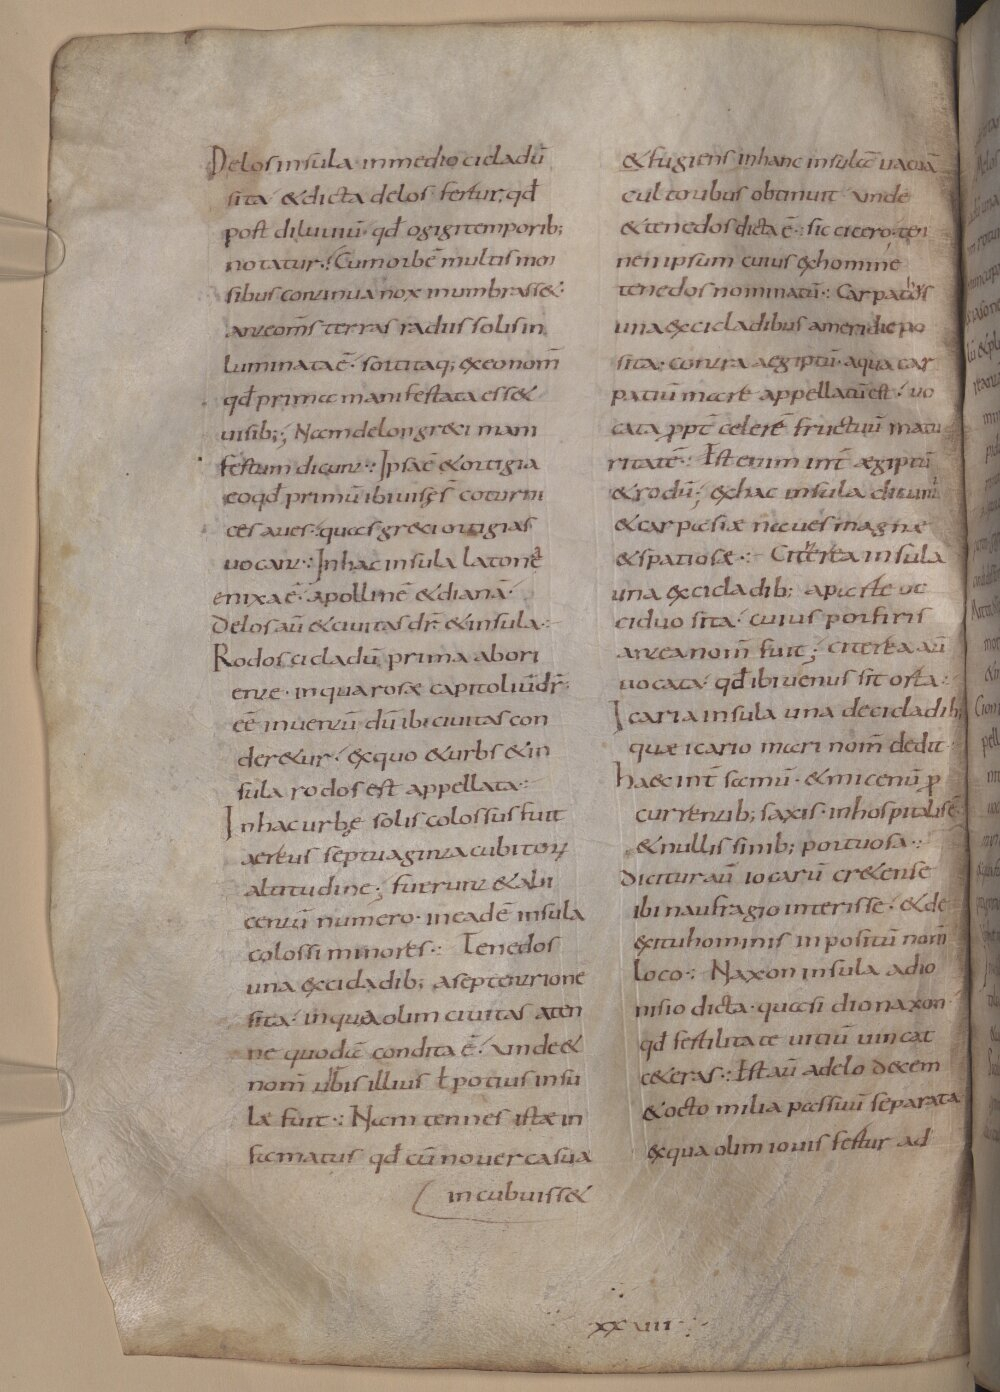 Delos insula inmedio cicladū
sita· &dicta delos fertur; qđ
post diluuiū· qđ ogigi temporib;
notatur·: Cum orbē multis men
sibus continua nox inumbrass&·
ante om̄s terras radiis solis in
luminata ē· sortitaq; ex eo nom̄
qđ prima manifestata ess&
uisib;; Nam delon greci mani
festum dicunt·: Ipsa ē &ortigia
eoqđ primū ibi uisę s̄ coturni
ces aues· quas greci ortigias
uocant·: Inhac insula latona
enixa ē· apollinē &dianā·
Delos aū &ciuitas dr̄ &insula·:
Rodos cicladū prima abori
ente· inqua rosæ capitoliū dr̄·
eē inuentū dū ibi ciuitas con
der&ur· exquo &urbs &in
sula rodos est appellata·:
Inhac urbe solis colossus fuit
aereus septuaginta cubitoꝝ
altitudine; fuerunt &alii
centū numero· ineadē insula
colossi minores·: Tenedos
una ex cicladib; aseptentrione
sita· inqua olim ciuitas aten
ne quodā condita ē· unde &
nom̄ urbis illius ł potius insu
læ fuit·: Nam tennes iste in
famatus qđ cū nouerca sua
incubuiss&
&fugiens inhanc insulā uacuā
cultoribus obtinuit· unde
&tenedos dicta ē·: sic cicero· ten
nem ipsum cuius ex homine
tenedos nominatū·: Carpathos
una ex cicladibus ameridie po
sita; contra aegiptū· aqua car
patiū mare appellatū est· uo
cata ꝓpt̄ celerē fructuū matu
ritatē·: Ist enim int̄ ægiptū
&rodū; exhac insula dicunt̄
&carpasiæ naues magnæ
&spatiosæ·: Citerea insula
una ex cicladib; aparte oc
cidua sita· cuius porfiris
antea nom̄ fuit; citerea aū
uocata· qđ ibi uenus sit orta·:
Icaria insula una de cicladib;
quæ icario mari nom̄ dedit·
haec int̄ samū· &micenū ꝓ
currentib; saxis· inhospitalis ē·
&nullis sinib; portuosa·:
Dicitur aū iocarū cr&ense
ibi naufragio interisse· &de
exitu hominis inpositū nom̄
loco·: Naxon insula adio
nisio dicta· quasi dionaxon·
qđ fertilitate uitiū uincat
c&eras·: Ist aū adelo decem
&octo milia passuū separata
exqua olim iouis fertur ad
xxuiii